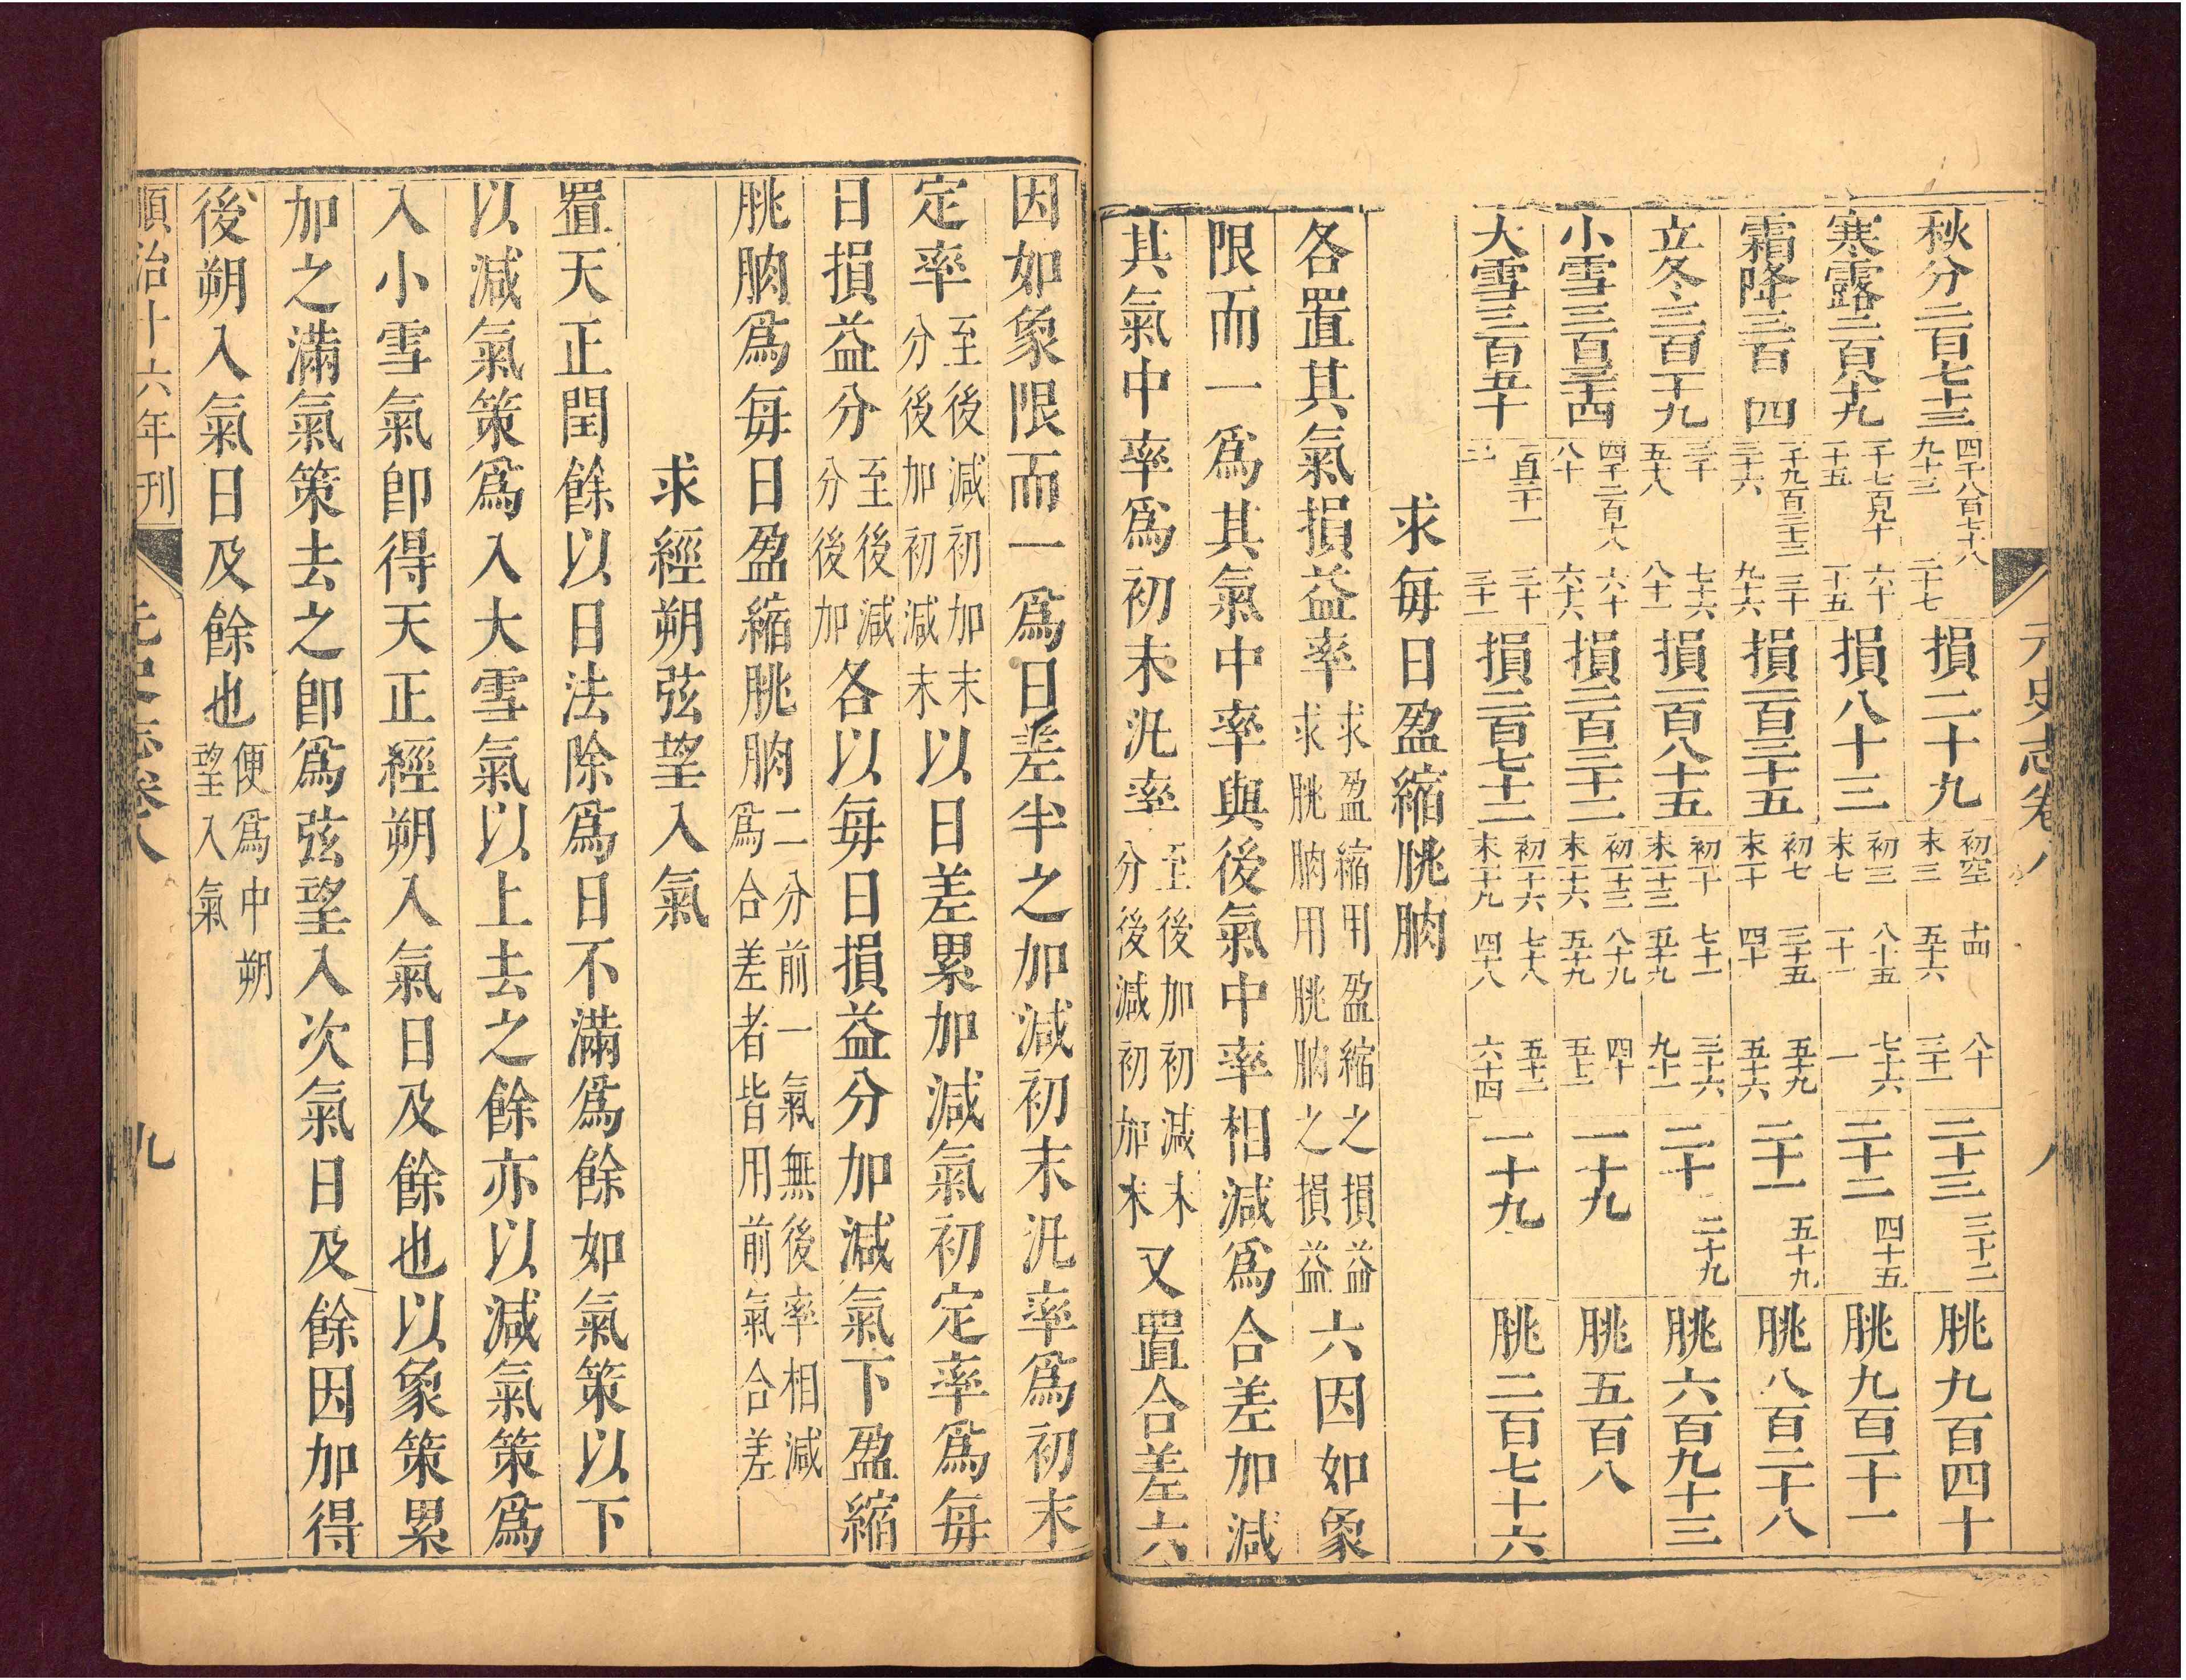 元史志卷八 八
秋分二百七十三 四千八百七十八 二十七 九十三 損二十九 初空 十四 八十 末三 五十六 三十一 二十三 三十二 朓九百四十
寒露二百八十九 二千七百九十 六十 二十五 十五 損八十三 初三 八十五 七十六 末七 二十一 一 二十二 四十五 朓九百一十一
霜降三百四 二千九百三十三 三十 三十六 九十六 損一百三十五 初七 三十五 五十九 末一十 四十 五十六 二十一 五十九 朓八百二十八
立冬三百一十九 三千 七十六 五十八 八十一 損一百八十五 初十 七十一 三十六 末一十三 五十九 九十一 二十 二十九 朓六百九十三
小雪三百三十四 四千二百六十八 六十 八十 六十六 損二百三十二 初一十三 八十九 四十 末一十六 五十九 五十三 一十九 朓五百八
大雪三百五十 一百二十一 三十 二 三十一 損二百七十六 初一十六 七十八 五十二 末一十九 四十八 六十四 一十九 朓二百七十六
求每日盈縮朓朒
各置其氣損益率求盈縮用盈縮之損益求朓朒用朓朒之損益六因如象
限而一爲其氣中率與後氣中率相減爲合差加減
其氣中率爲初末汎率至後加初減末分後減初加末又置合差六
因如象限而一爲日差半之加減初末汎率爲初末
定率至後減初加末分後加初減末以日差累加減氣初定率爲每
日損益分至後減分後加各以每日損益分加減氣下盈縮
朓朒爲每日盈縮朓朒二分前一氣無後率相減爲合差者皆用前氣合差
求經朔弦望入氣
置天正閏餘以日法除爲日不滿爲餘如氣策以下
以減氣策爲入大雪氣以上去之餘亦以減氣策爲
入小雪氣卽得天正經朔入氣日及餘也以象策累
加之滿氣策去之卽爲弦望入次氣日及餘因加得
後朔入氣日及餘也便爲中朔望入氣
順治十六年刊 元史志卷八 九